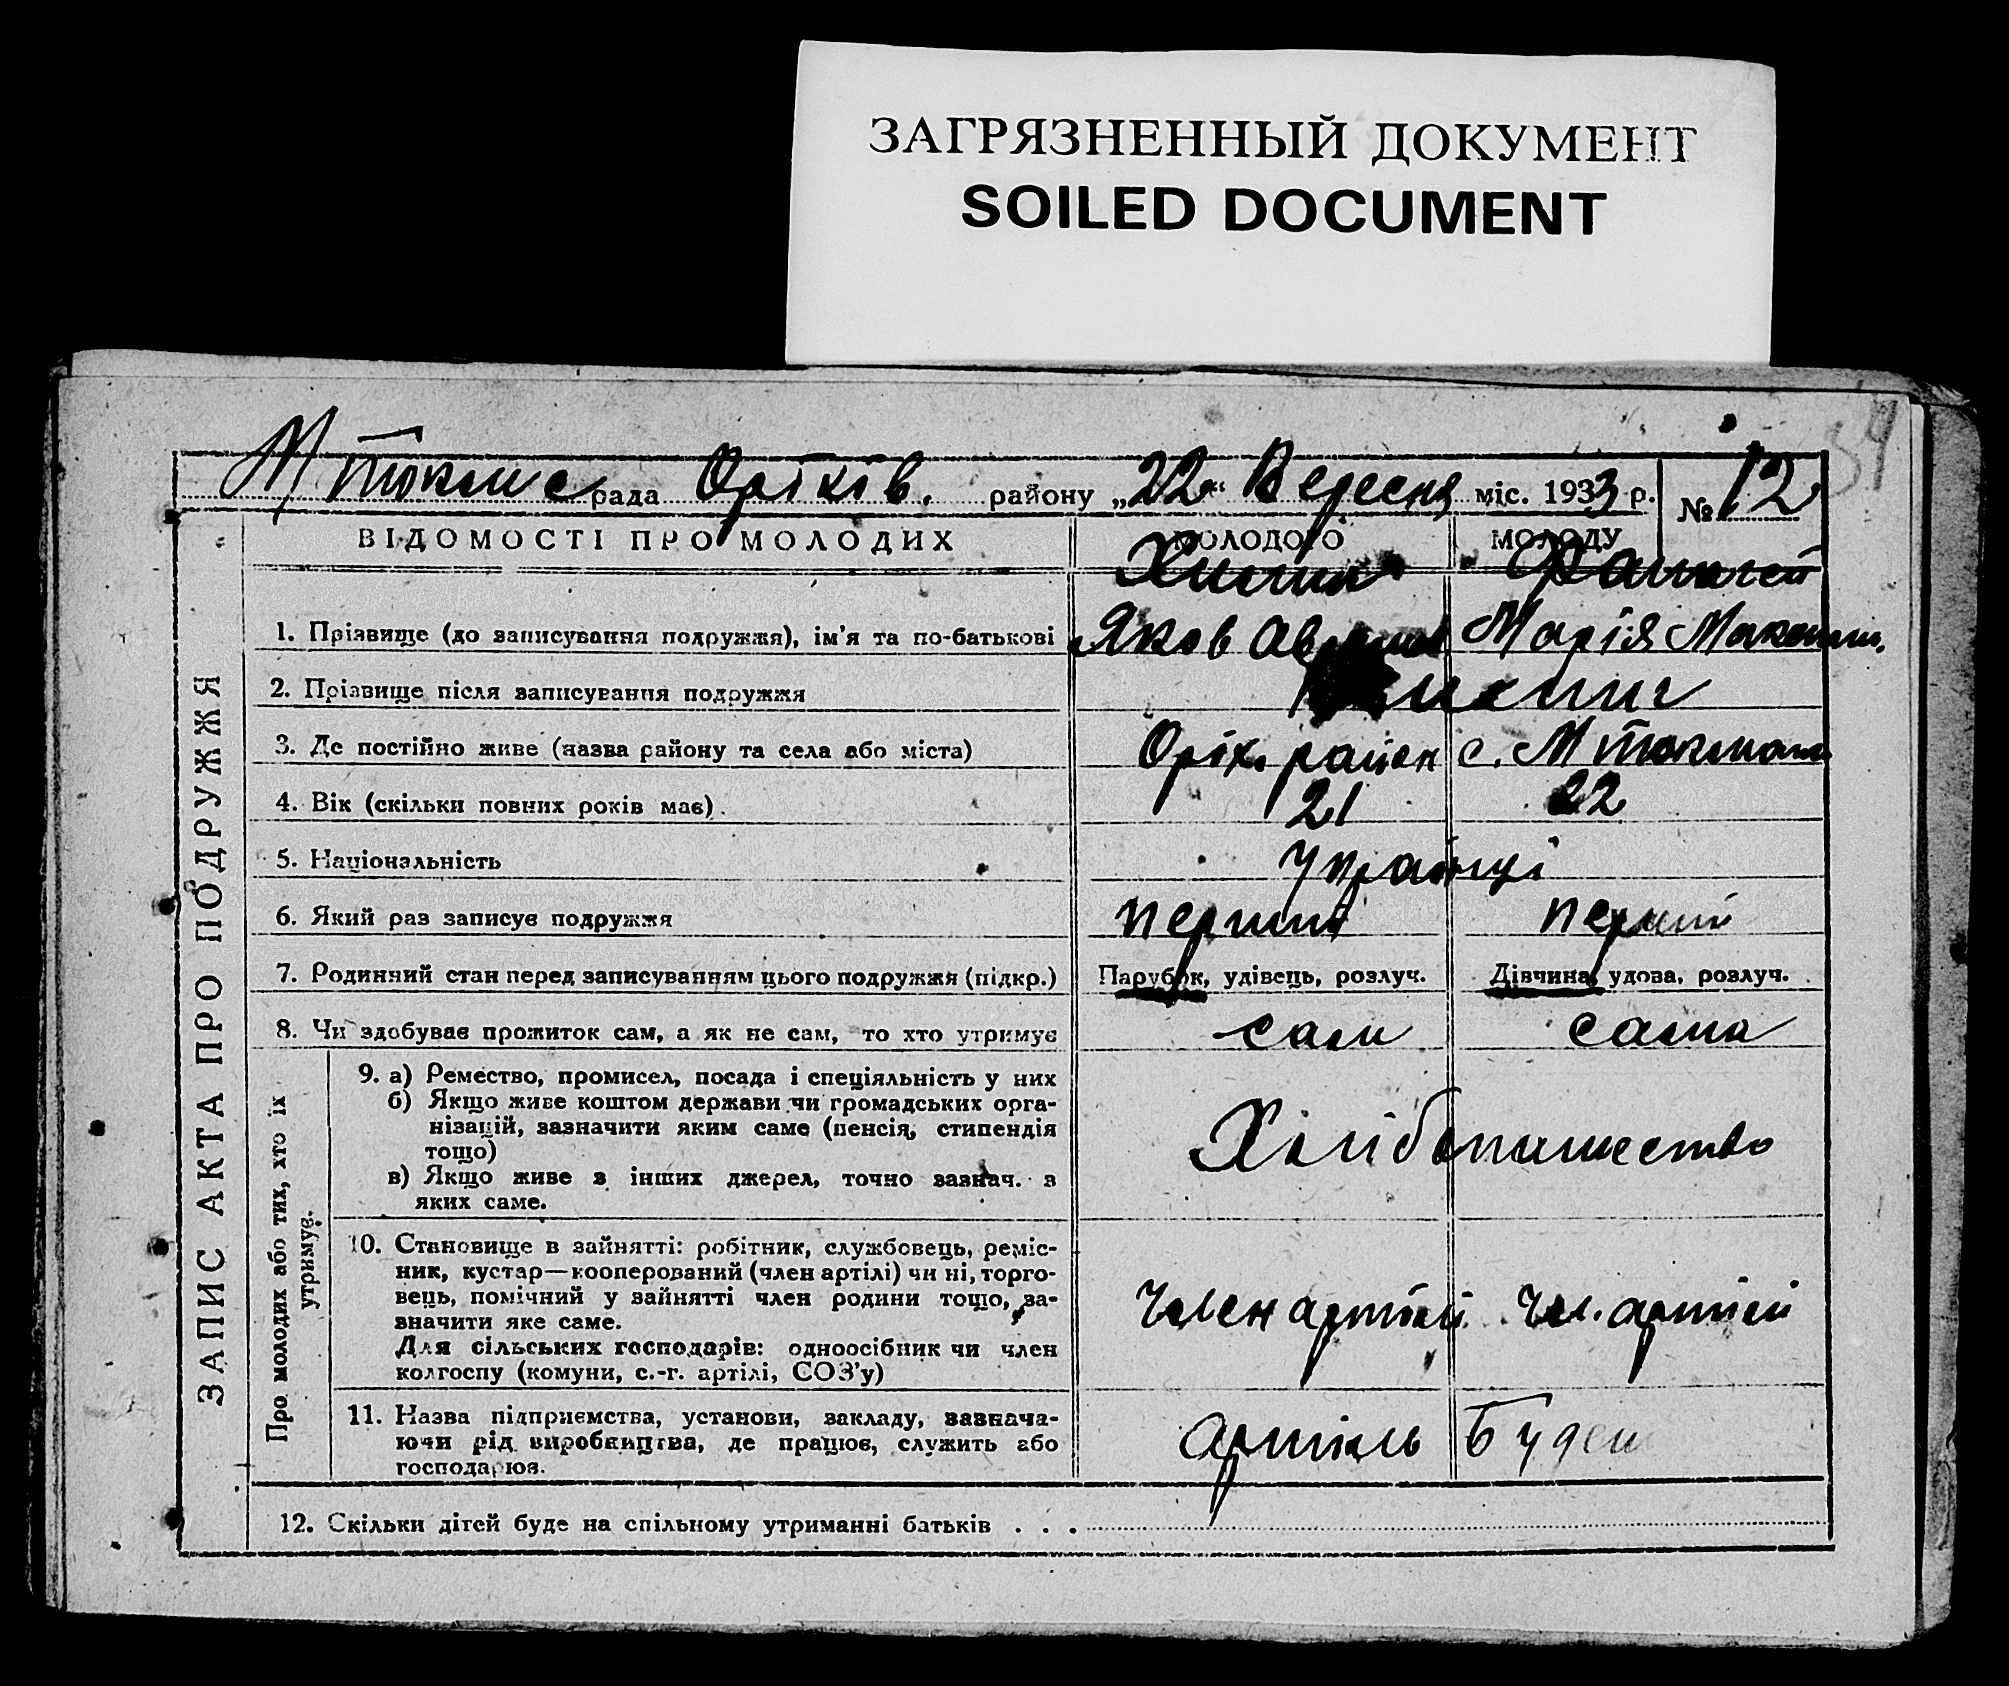 ЗАГРЯЗНЕННЫЙ ДОКУМЕНТ
SOILED DOCUMENT
34
М Токмас рада Оріхів. району „22“ Вересня міс. 1933 р. № 12
ЗАПИС АКТА ПРО ПОДРУЖЖЯ
ВІДОМОСТІ ПРО МОЛОДИХ МОЛОДОГО МОЛОДУ
1. Прізвище (до записування подружжя), ім’я та по-батькові Яков Марія
2. Прізвище після записування подружжя
3. Де постійно живе (назва району та села або міста) Оріх. район с. М Токмач
4. Вік (скільки повних років має) . 21 22
5. Національність Украінці
6. Який раз записує подружжя перший перший
7. Родинний стан перед записуванням цього подружжя (підкр.) Парубок, удівець, розлуч. Дівчина, удова, розлуч.
8. Чи здобуває прожиток сам, а як не сам, то хто утримує сам сама
Про молодих або тих, хто їх
утримує.
9. а) Ремество, промисел, посада і спеціяльність у них
б) Якщо живе коштом держави чи громадських орга-
нізацій, зазначити яким саме (пенсія, стипендія
тощо)
в) Якщо живе з інших джерел, точно зазнач. з
яких саме.
10. Становище в зайнятті: робітник, службовець, реміс-
ник, кустар—кооперований (член артілі) чи ні, торго-
вець, помічний у зайнятті член родини тощо, за-
значити яке саме.
Для сільських господарів: одноосібник чи член
колгоспу (комуни, с.-г. артілі, СОЗ’у)
Член артілі Чл. артілі
11. Назва підприємства, установи, закладу, зазнача-
ючи рід виробництва, де працює, служить або
господарює.
Артіль Буден
12. Скільки дітей буде на спільному утриманні батьків . . .